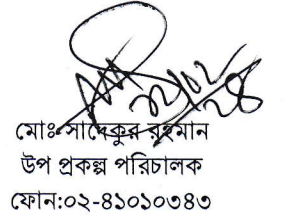 ২২/০২/২৪
মোঃ সাদেকুর রহমান
উপ প্রকল্প পরিচালক
ফোন:০২-৪১০১০৩৪৩